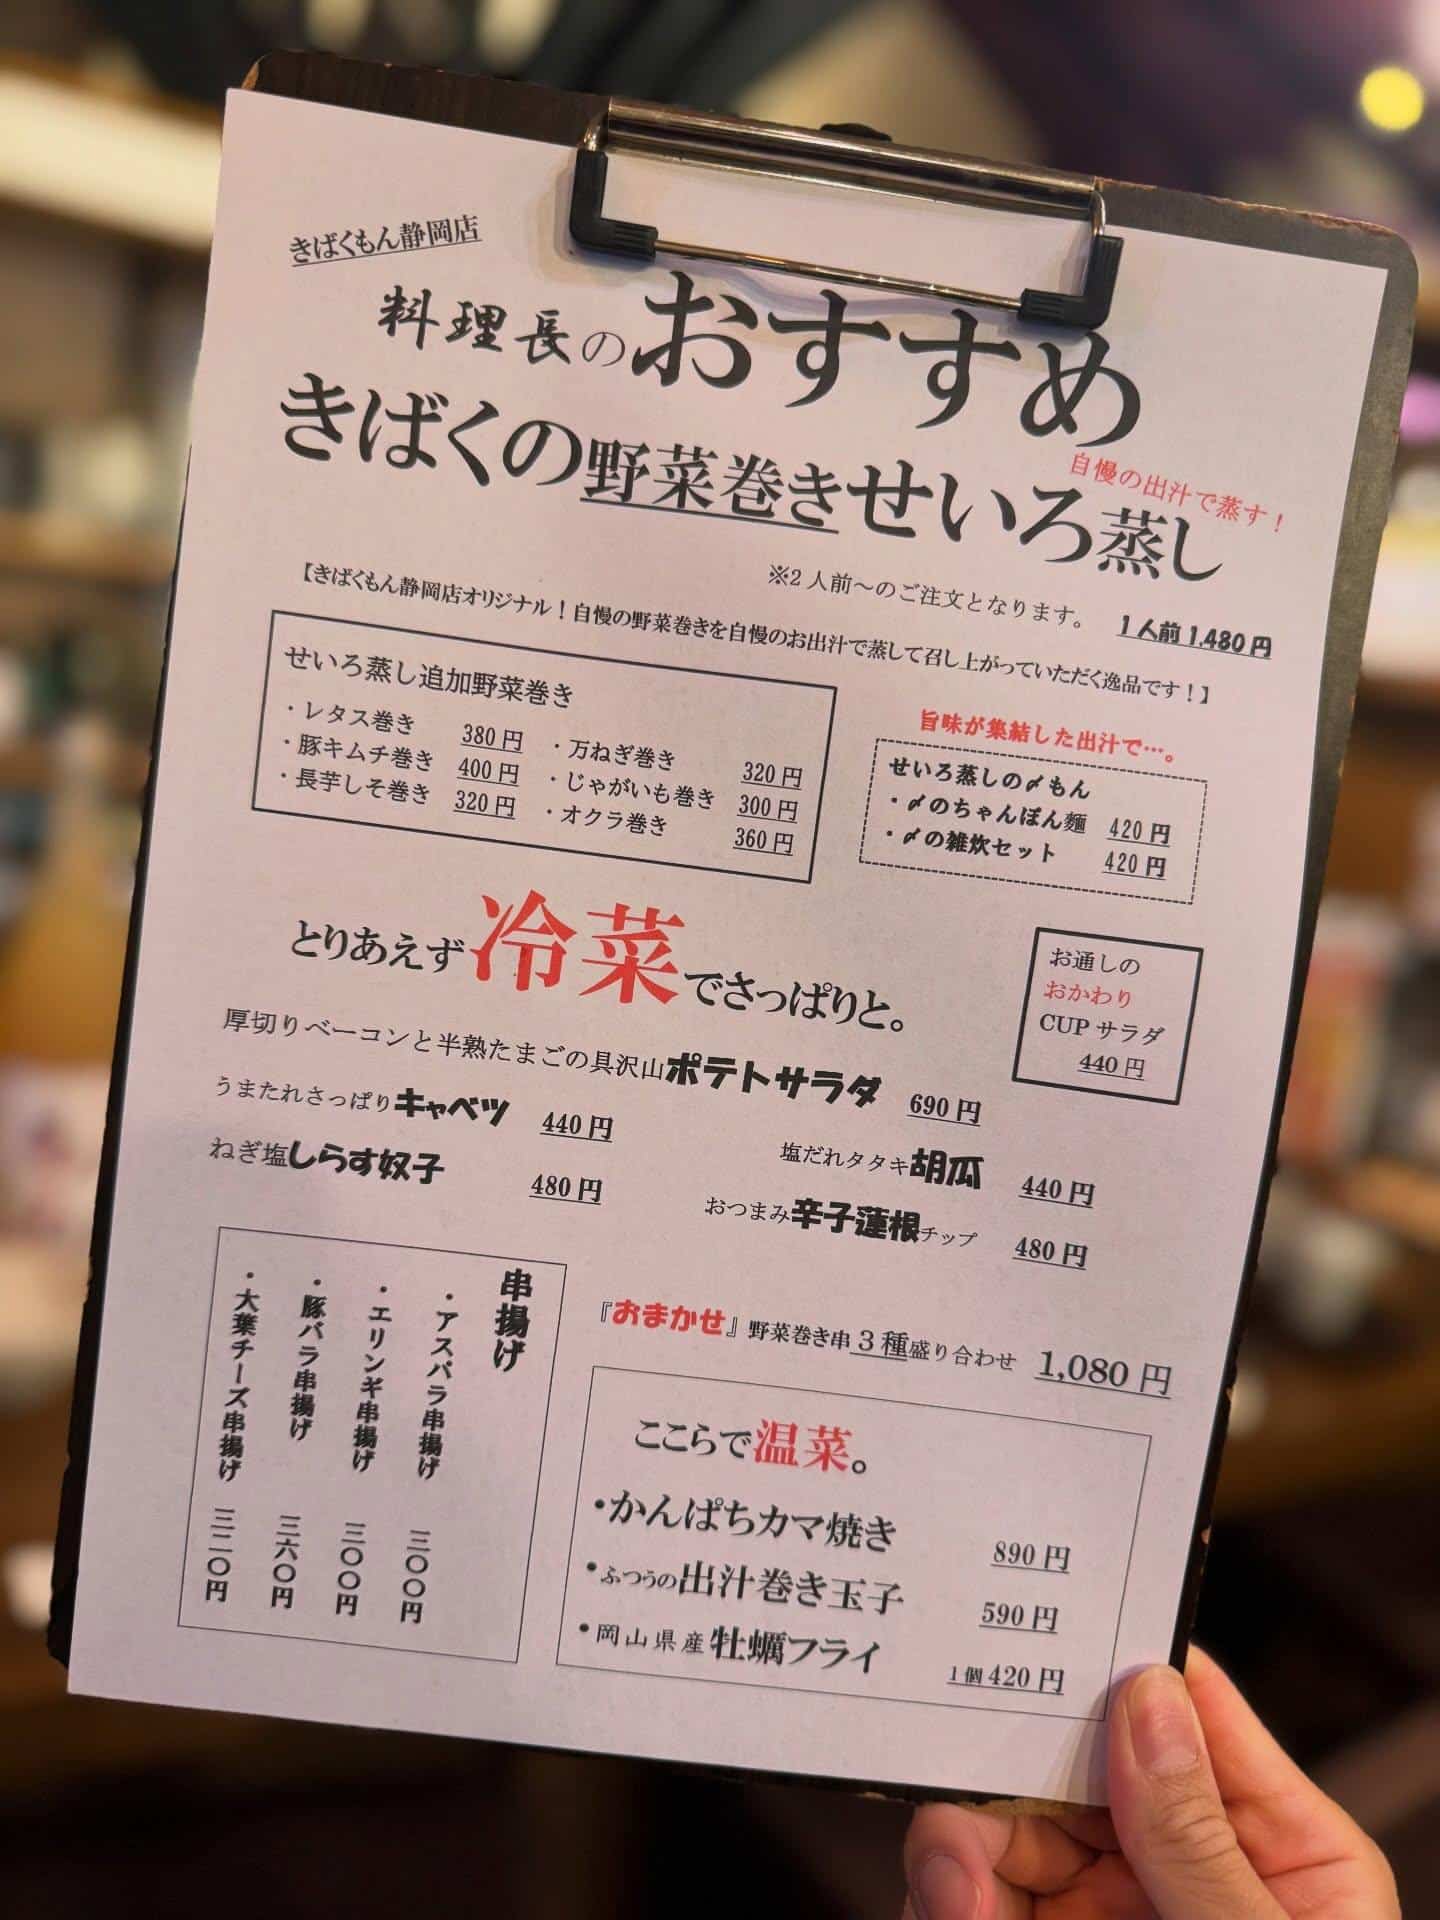 きばくもん静岡店
料理長のおすすめ
きばくの野菜巻きせいろ蒸し
自慢の出汁で蒸す！
※2人前～のご注文となります。 1人前1,480円
【きばくもん静岡店オリジナル！自慢の野菜巻きを自慢のお出汁で蒸して召し上がっていただく逸品です！】
せいろ蒸し追加野菜巻き
・レタス巻き 380円 ・万ねぎ巻き 320円
・豚キムチ巻き 400円 ・じゃがいも巻き 300円
・長芋しそ巻き 320円 ・オクラ巻き 360円
旨味が集結した出汁で…。
せいろ蒸しの〆もん
・〆のちゃんぽん麺 420円
・〆の雑炊セット 420円
とりあえず冷菜でさっぱりと。
お通しの
おかわり
CUPサラダ
440円
厚切りベーコンと半熟たまごの具沢山ポテトサラダ 690円
うまたれさっぱりキャベツ 440円 塩だれタタキ胡瓜 440円
ねぎ塩しらす奴子 480円 おつまみ辛子蓮根チップ 480円
串揚げ
・アスパラ串揚げ 三〇〇円
・エリンギ串揚げ 三〇〇円
・豚バラ串揚げ 三六〇円
・大葉チーズ串揚げ 三二〇円
『おまかせ』野菜巻き串3種盛り合わせ 1,080円
ここらで温菜。
・かんぱちカマ焼き 890円
・ふつうの出汁巻き玉子 590円
・岡山県産牡蠣フライ 1個420円